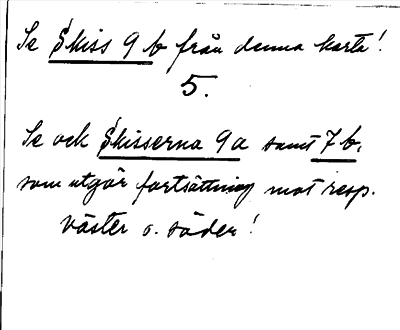 Se Skiss 9 b från denna karta!
5.
Se ock Skisserna 9a samt 7 b,
som utgör fortsättning mot resp.
väster o. söder!